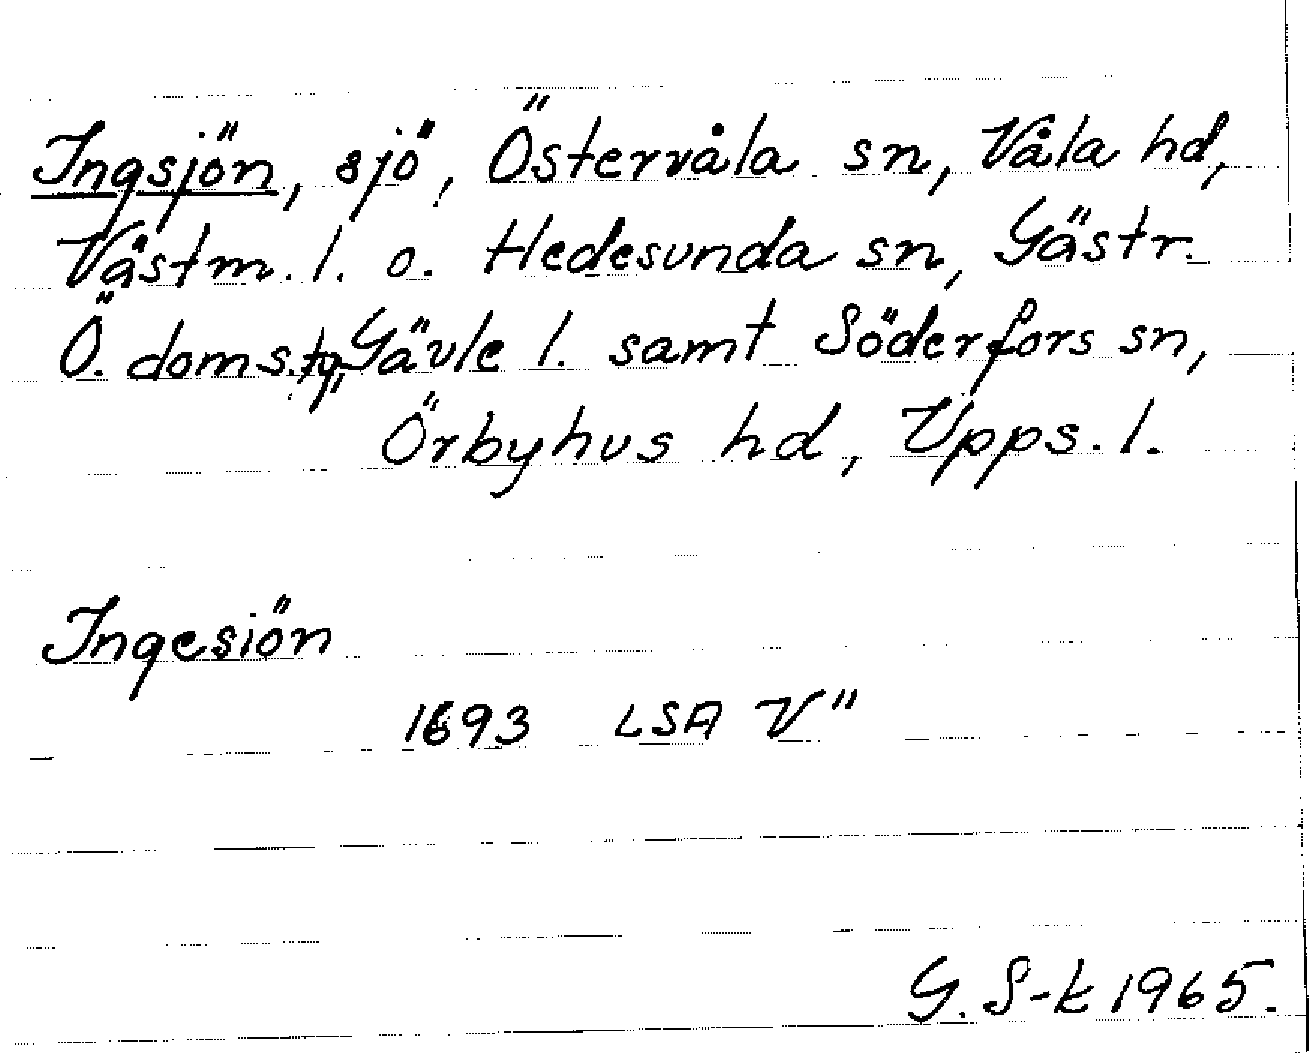 Ingsjön, sjö, Östervåla sn, Våla hd,
Västm. l. o. Hedesunda sn, Gästr.
Ö. doms.tg, Gävle l. samt Söderfors sn,
Örbyhus hd, Upps. l.
Ingesiön
1693 LSA V"
G. S-k 1965.